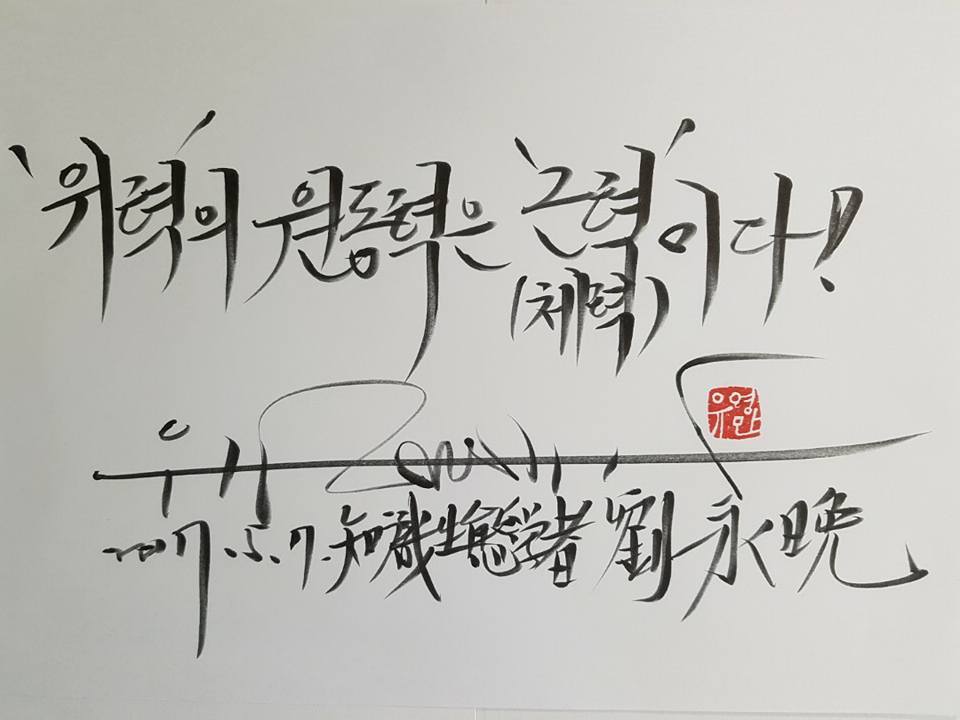 '위력'의 원동력은 '근력'이다!
(체력)
유영만
2017.5.7. 知識生態學者 劉永晚